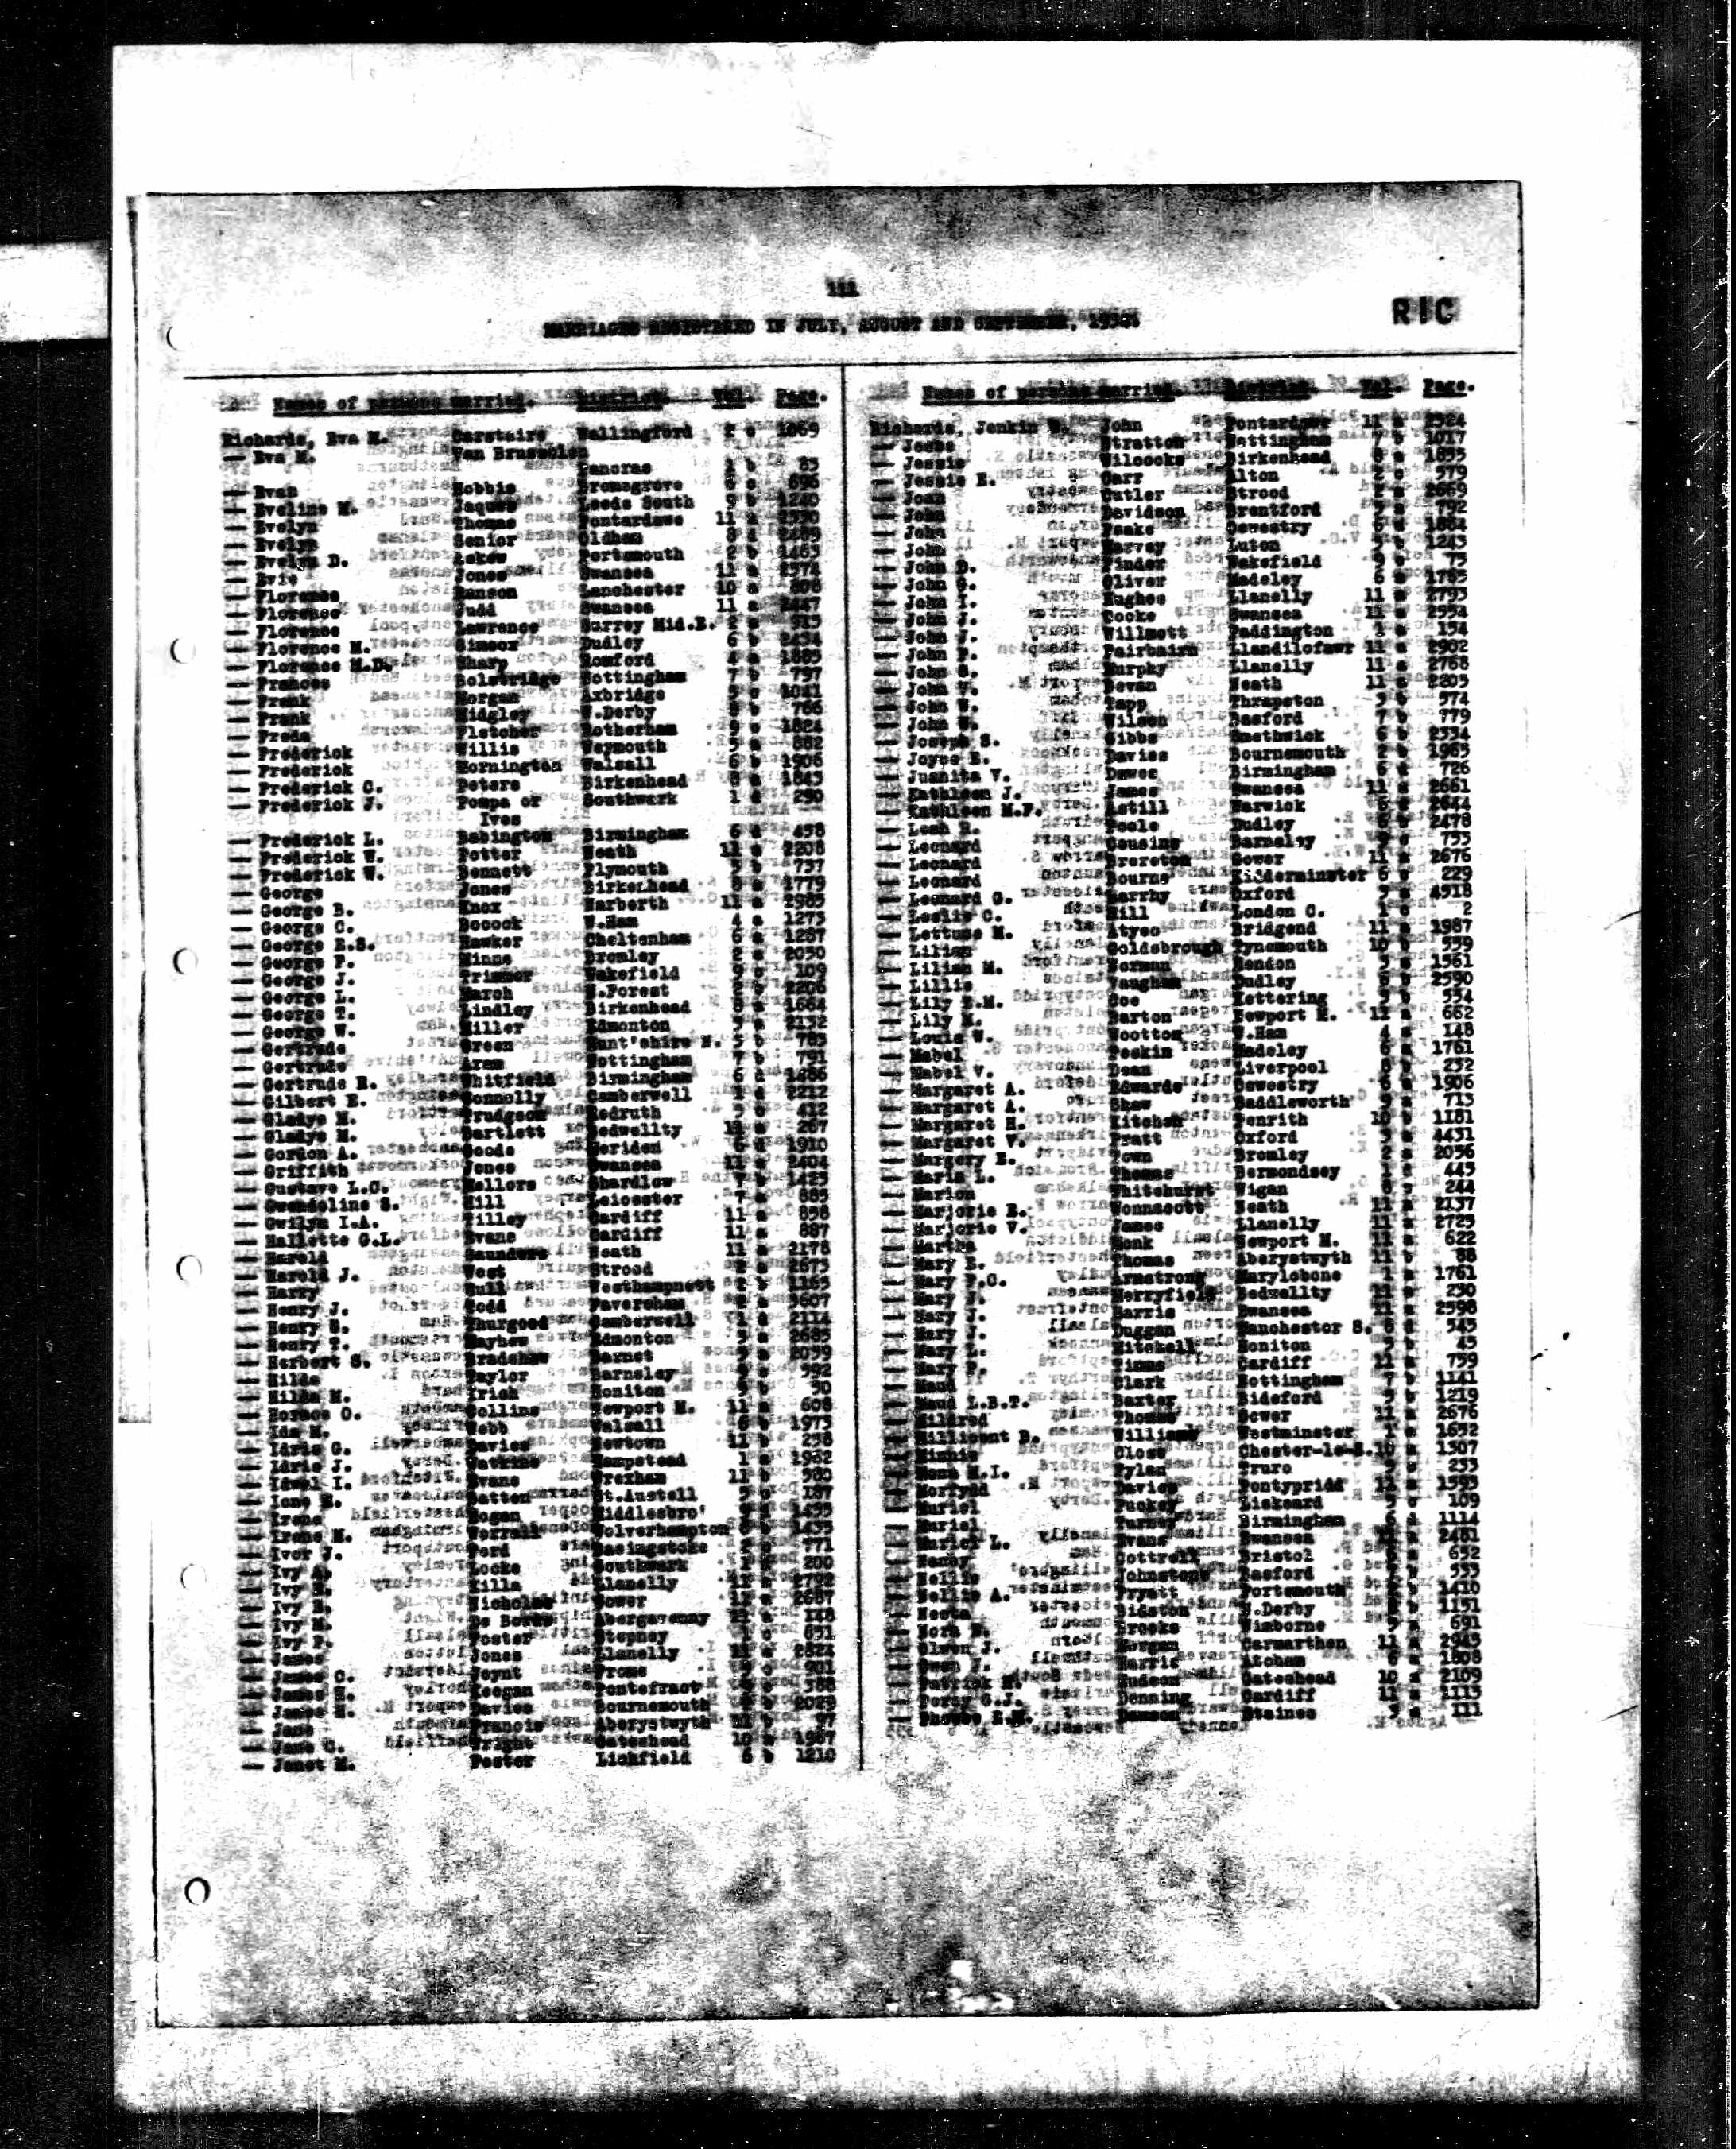 111
MARRIAGES REGISTERED IN JULY, AUGUST AND SEPTEMBER,
RIC
Names of persons married. District. Vol. Page.
Richards, Eva M. Carstairs Wallingford 2 c 1069
— Eva M. Van Brusselen
Pancras 1 b 85
— Evan Hobbis Bromsgrove 6 c 696
— Eveline M. Jaques Leeds South 9 b 1240
— Evelyn Thomas Pontardawe 11 a
— Evelyn Senior Oldham 8 d 2489
— Evelyn D. Askew Portsmouth 2 b 1463
— Evie Jones Swansea 11 a 2574
— Florence Ranson Lanchester 10 a 808
— Florence Judd Swansea 11 a 2447
— Florence Lawrence Surrey Mid.E. 2 a 915
— Florence M. Simcox Dudley 6 b 2434
— Florence M.D. Sharp Romford 4 a 1885
— Frances Bolstridge Nottingham 7 b 797
— Frank Morgan Axbridge 5 c 1041
— Frank Midgley W.Derby 8 b 766
— Freda Fletcher Rotherham 9 c 1824
— Frederick Willis Weymouth 5 a 882
— Frederick Hornington Walsall 6 b 1906
— Frederick C. Peters Birkenhead 8 a 1843
— Frederick J. Pompa or Southwark 1 d 290
Ives
— Frederick L. Babington Birmingham 6 d 458
— Frederick W. Potter Neath 11 a 2208
— Frederick W. Bennett Plymouth 5 b 737
— George Jones Birkenhead 8 a 1779
— George B. Knox Narberth 11 a 2985
— George C. Bocock W.Ham 4 a 1273
— George E.S. Hawker Cheltenham 6 a 1287
— George F. Minns Bromley 2 a 2050
— George J. Trimmer Wakefield 9 c 109
— George L. March N.Forest 2 b 2206
— George T. Lindley Birkenhead 8 a 1664
— George W. Miller Edmonton 3 a 2132
— Gertrude Green Hunt'shire N. 3 b 785
— Gertrude Aram Nottingham 7 b 791
— Gertrude R. Whitfield Birmingham 6 d 1886
— Gilbert E. Connolly Camberwell 1 d 2212
— Gladys M. Trudgeon Redruth 5 c 412
— Gladys M. Bartlett Bedwellty 11 a 267
— Gordon A. Goode Meriden 6 d 1910
— Griffith Jones Swansea 11 a 2404
— Gustave L.C. Mellors Shardlow 7 b 1425
— Gwendoline S. Hill Leicester 7 a 885
— Gwilym I.A. Tilley Cardiff 11 a 858
— Hallette G.L. Evans Cardiff 11 a 887
— Harold Saunders Neath 11 a 2178
— Harold J. West Strood 2 a 2673
— Harry Hull Westhampnett 2 b 1165
— Henry J. Todd Faversham 2 a 3607
— Henry S. Thurgood Camberwell 1 d 2114
— Henry T. Mayhew Edmonton 3 a 2685
— Herbert S. Bradshaw Barnet 3 a 2039
— Hilda Taylor Barnsley 9 c 592
— Hilda M. Irish Honiton 5 b 50
— Horace O. Collins Newport M. 11 a 608
— Ida M. Webb Walsall 6 b 1973
— Idris G. Davies Newtown 11 b 238
— Idris J. Watkins Hampstead 1 a 1962
— Idwal I. Evans Wrexham 11 b 980
— Ione M. Batten St.Austell 5 c 187
— Irene Hogan Middlesbro' 9 d 1455
— Irene M. Worrall Wolverhampton 6 b 1435
— Ivor J. Ford Basingstoke 2 c 771
— Ivy A. Locke Southwark 1 d 200
— Ivy E. Killa Llanelly 11 a 2792
— Ivy E. Nicholas Gower 11 a 2687
— Ivy M. Abergavenny 11 a 148
— Ivy P. Foster Stepney 1 c 651
— James Jones Llanelly 11 a 2824
— James C. Joynt Frome 5 c 901
— James E. Keegan Pontefract 9 c 388
— James H. Davies Bournemouth 2 b 2029
— Jane Francis Aberystwyth 11 b 97
— Jane G. Wright Gateshead 10 a 1987
— Janet M. Pester Lichfield 6 b 1210
Names of persons married. District. Vol. Page.
Richards, Jenkin W. John Pontardawe 11 a 2524
— Jesse Stratton Nottingham 7 b 1017
— Jessie Wilcocks Birkenhead 8 a 1855
— Jessie E. Carr Alton 2 c 579
— Joan Cutler Strood 2 a 2669
— John Davidson Brentford 3 a 792
— John Peake Oswestry 6 a 1884
— John Harvey Luton 3 b 1243
— John D. Pinder Wakefield 9 c 75
— John G. Oliver Madeley 6 a 1785
— John I. Hughes Llanelly 11 a 2793
— John J. Cooke Swansea 11 a 2554
— John J. Willmott Paddington 1 a 154
— John P. Fairbairn Llandilofawr 11 a 2902
— John S. Murphy Llanelly 11 a 2768
— John V. Bevan Neath 11 a 2205
— John W. Tapp Thrapston 3 b 574
— John W. Wilson Basford 7 b 779
— Joseph S. Gibbs Smethwick 6 b 2334
— Joyce E. Davies Bournemouth 2 b 1985
— Juanita V. Dawes Birmingham 6 d 726
— Kathleen J. James Swansea 11 a 2661
— Kathleen M.F. Astill Warwick 6 d 2644
— Leah R. Poole Dudley 6 b 2478
— Leonard Cousins Barnsley 9 c 755
— Leonard Brereton Gower 11 a 2676
— Leonard Bourne Kidderminster 6 c 229
— Leonard G. Oxford 3 a 4518
— Leslie C. Hill London C. 1 c 2
— Lettuce M. Atyeo Bridgend 11 a 1987
— Lilian Goldsbrough Tynemouth 10 b 559
— Lilian M. Norman Hendon 3 a 1561
— Lillie Vaughan Dudley 6 b 2590
— Lily E.M. Coe Kettering 3 b 554
— Lily M. Barton Newport M. 11 a 662
— Louis W. Wootton W.Ham 4 a 148
— Mabel Peskin Madeley 6 a 1761
— Mabel V. Dean Liverpool 8 b 232
— Margaret A. Edwards Oswestry 6 a 1906
— Margaret A. Shaw Saddleworth 9 a 713
— Margaret H. Kitchen Penrith 10 b 1181
— Margaret V. Pratt Oxford 3 a 4431
— Margery E. Town Bromley 2 a 2056
— Maria L. Thomas Bermondsey 1 d 445
— Marion Whitehurst Wigan 8 c 244
— Marjorie E. Wonnacott Neath 11 a 2137
— Marjorie V. James Llanelly 11 a 2725
— Martha Monk Newport M. 11 a 622
— Mary E. Thomas Aberystwyth 11 b 88
— Mary F.C. Armstrong Marylebone 1 a 1761
— Mary J. Merryfield Bedwellty 11 a 230
— Mary J. Harris Swansea 11 a 2598
— Mary J. Duggan Manchester S. 8 d 545
— Mary L. Mitchell Honiton 5 b 45
— Mary P. Timms Cardiff 11 a 759
— Maud Clark Nottingham 7 b 1141
— Maud L.B.T. Baxter Bideford 5 b 1219
— Mildred Thomas Gower 11 a 2676
— Millicent B. Williams Westminster 1 a 1652
— Minnie Close Chester-le-S. 10 a 1307
— Mona M.I. Pylan Truro 5 c 255
— Morfydd Davies Pontypridd 11 a 1593
— Muriel Puckey Liskeard 5 c 109
— Muriel Turner Birmingham 6 d 1114
— Muriel L. Evans Swansea 11 a 2481
— Nancy Cottrell Bristol 6 a 652
— Nellie Johnstone Basford 7 b 555
— Nellie A. Pryatt Portsmouth 2 b 1410
— Nesta W.Derby 8 b 1151
— Nora E. Brooks Wimborne 5 a 691
— Olwen J. Morgan Carmarthen 11 a 2943
— Owen Harris Atcham 6 a 1808
— Patrick H. Hudson Gateshead 10 a 2109
— Percy G.J. Denning Cardiff 11 a 1113
— Phoebe E.M. Dawson Staines 3 a 111